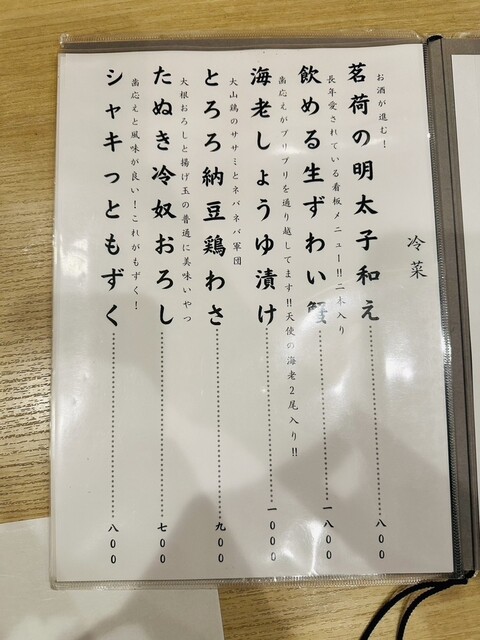 冷菜
お酒が進む!
茗荷の明太子和え 八00
長年愛されている看板メニュー!!二本入り
飲める生ずわい蟹 一八00
歯応えがプリプリを通り越してます!!天使の海老2尾入り!!
海老しょうゆ漬け 一000
大山鶏のササミとネバネバ軍団
とろろ納豆鶏わさ 九00
大根おろしと揚げ玉の普通に美味いやつ
たぬき冷奴おろし 七00
歯応えと風味が良い!これがもずく!
シャキっともずく 八00